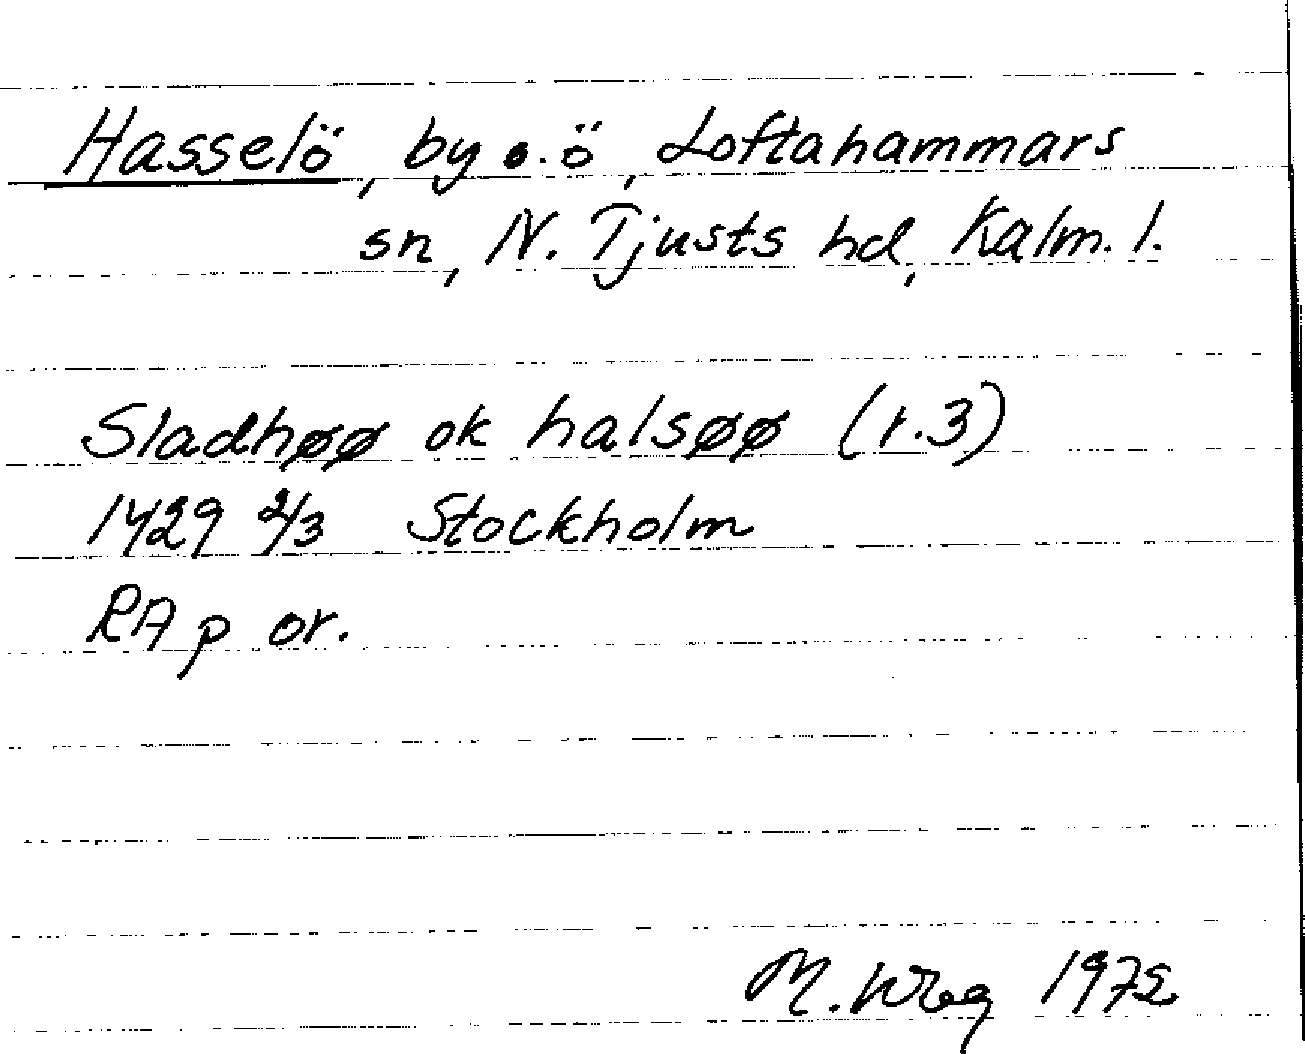 Hasselö, by o. ö, Loftahammars
sn, N. Tjusts hd, Kalm. l.
Sladhøø ok halsøø (r.3)
1429 2/3 Stockholm
RA p or.
M. 1972